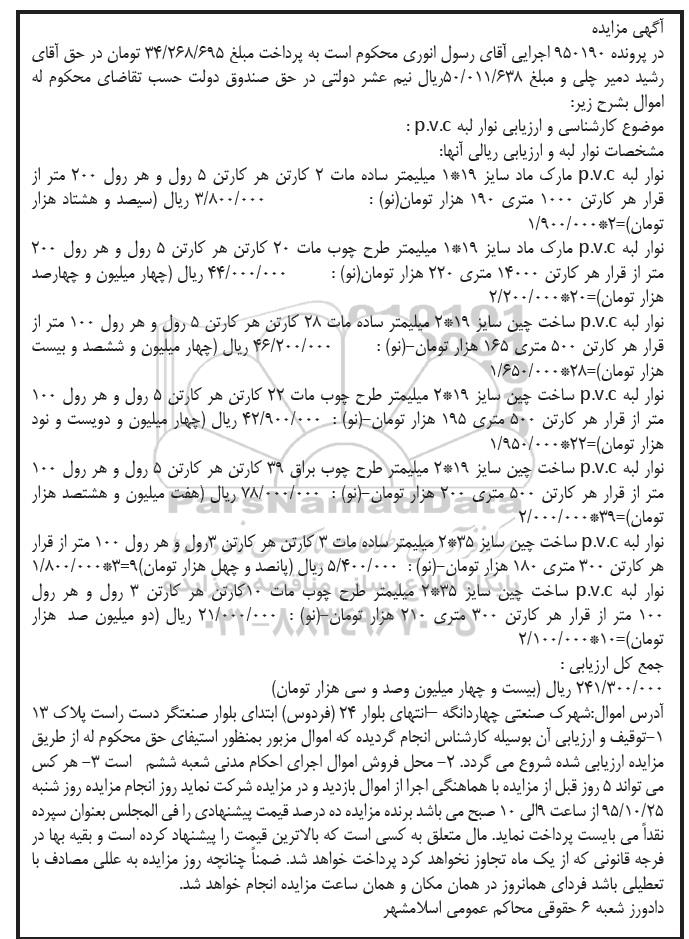 آگهی مزایده
در پرونده ۹۵۰۱۹۰ اجرایی آقای رسول انوری محکوم است به پرداخت مبلغ ۳۴/۲۶۸/۶۹۵ تومان در حق آقای
رشید دمیر چلی و مبلغ ۵۰/۰۱۱/۶۳۸ریال نیم عشر دولتی در حق صندوق دولت حسب تقاضای محکوم له
اموال بشرح زیر:
موضوع کارشناسی و ارزیابی نوار لبه p.v.c :
مشخصات نوار لبه و ارزیابی ریالی آنها:
نوار لبه p.v.c مارک ماد سایز ۱۹*۱ میلیمتر ساده مات ۲ کارتن هر کارتن ۵ رول و هر رول ۲۰۰ متر از
قرار هر کارتن ۱۰۰۰ متری ۱۹۰ هزار تومان(نو) : ۳/۸۰۰/۰۰۰ ریال (سیصد و هشتاد هزار
تومان)=۲*۱/۹۰۰/۰۰۰
نوار لبه p.v.c مارک ماد سایز ۱۹*۱ میلیمتر طرح چوب مات ۲۰ کارتن هر کارتن ۵ رول و هر رول ۲۰۰
متر از قرار هر کارتن ۱۴۰۰۰ متری ۲۲۰ هزار تومان(نو) : ۴۴/۰۰۰/۰۰۰ ریال (چهار میلیون و چهارصد
هزار تومان)=۲۰*۲/۲۰۰/۰۰۰
نوار لبه p.v.c ساخت چین سایز ۱۹*۲ میلیمتر ساده مات ۲۸ کارتن هر کارتن ۵ رول و هر رول ۱۰۰ متر از
قرار هر کارتن ۵۰۰ متری ۱۶۵ هزار تومان-(نو) : ۴۶/۲۰۰/۰۰۰ ریال (چهار میلیون و ششصد و بیست
هزار تومان)=۲۸*۱/۶۵۰/۰۰۰
نوار لبه p.v.c ساخت چین سایز ۱۹*۲ میلیمتر طرح چوب مات ۲۲ کارتن هر کارتن ۵ رول و هر رول ۱۰۰
متر از قرار هر کارتن ۵۰۰ متری ۱۹۵ هزار تومان-(نو) : ۴۲/۹۰۰/۰۰۰ ریال (چهار میلیون و دویست و نود
هزار تومان)=۲۲*۱/۹۵۰/۰۰۰
نوار لبه p.v.c ساخت چین سایز ۱۹*۲ میلیمتر طرح چوب براق ۳۹ کارتن هر کارتن ۵ رول و هر رول ۱۰۰
متر از قرار هر کارتن ۵۰۰ متری ۲۰۰ هزار تومان-(نو) : ۷۸/۰۰۰/۰۰۰ ریال (هفت میلیون و هشتصد هزار
تومان)=۳۹*۲/۰۰۰/۰۰۰
نوار لبه p.v.c ساخت چین سایز ۳۵*۲ میلیمتر ساده مات ۳ کارتن هر کارتن ۳رول و هر رول ۱۰۰ متر از قرار
هر کارتن ۳۰۰ متری ۱۸۰ هزار تومان-(نو) : ۵/۴۰۰/۰۰۰ ریال (پانصد و چهل هزار تومان)۹=۳*۱/۸۰۰/۰۰۰
نوار لبه p.v.c ساخت چین سایز ۳۵*۲ میلیمتر طرح چوب مات ۱۰کارتن هر کارتن ۳ رول و هر رول
۱۰۰ متر از قرار هر کارتن ۳۰۰ متری ۲۱۰ هزار تومان-(نو) : ۲۱/۰۰۰/۰۰۰ ریال (دو میلیون صد هزار
تومان)=۱۰*۲/۱۰۰/۰۰۰
جمع کل ارزیابی :
۲۴۱/۳۰۰/۰۰۰ ریال (بیست و چهار میلیون وصد و سی هزار تومان)
آدرس اموال:شهرک صنعتی چهاردانگه –انتهای بلوار ۲۴ (فردوس) ابتدای بلوار صنعتگر دست راست پلاک ۱۳
۱-توقیف و ارزیابی آن بوسیله کارشناس انجام گردیده که اموال مزبور بمنظور استیفای حق محکوم له از طریق
مزایده ارزیابی شده شروع می گردد. ۲- محل فروش اموال اجرای احکام مدنی شعبه ششم است ۳- هر کس
می تواند ۵ روز قبل از مزایده با هماهنگی اجرا از اموال بازدید و در مزایده شرکت نماید روز انجام مزایده روز شنبه
۹۵/۱۰/۲۵ از ساعت ۹الی ۱۰ صبح می باشد برنده مزایده ده درصد قیمت پیشنهادی را فی المجلس بعنوان سپرده
نقداً می بایست پرداخت نماید. مال متعلق به کسی است که بالاترین قیمت را پیشنهاد کرده است و بقیه بها در
فرجه قانونی که از یک ماه تجاوز نخواهد کرد پرداخت خواهد شد. ضمناً چنانچه روز مزایده به عللی مصادف با
تعطیلی باشد فردای همانروز در همان مکان و همان ساعت مزایده انجام خواهد شد.
دادورز شعبه ۶ حقوقی محاکم عمومی اسلامشهر
ParsNamadData
پایگاه اطلاع رسانی مناقصه و مزایده
۰۲۱-۸۸۳۴۹۶۷۰-۵